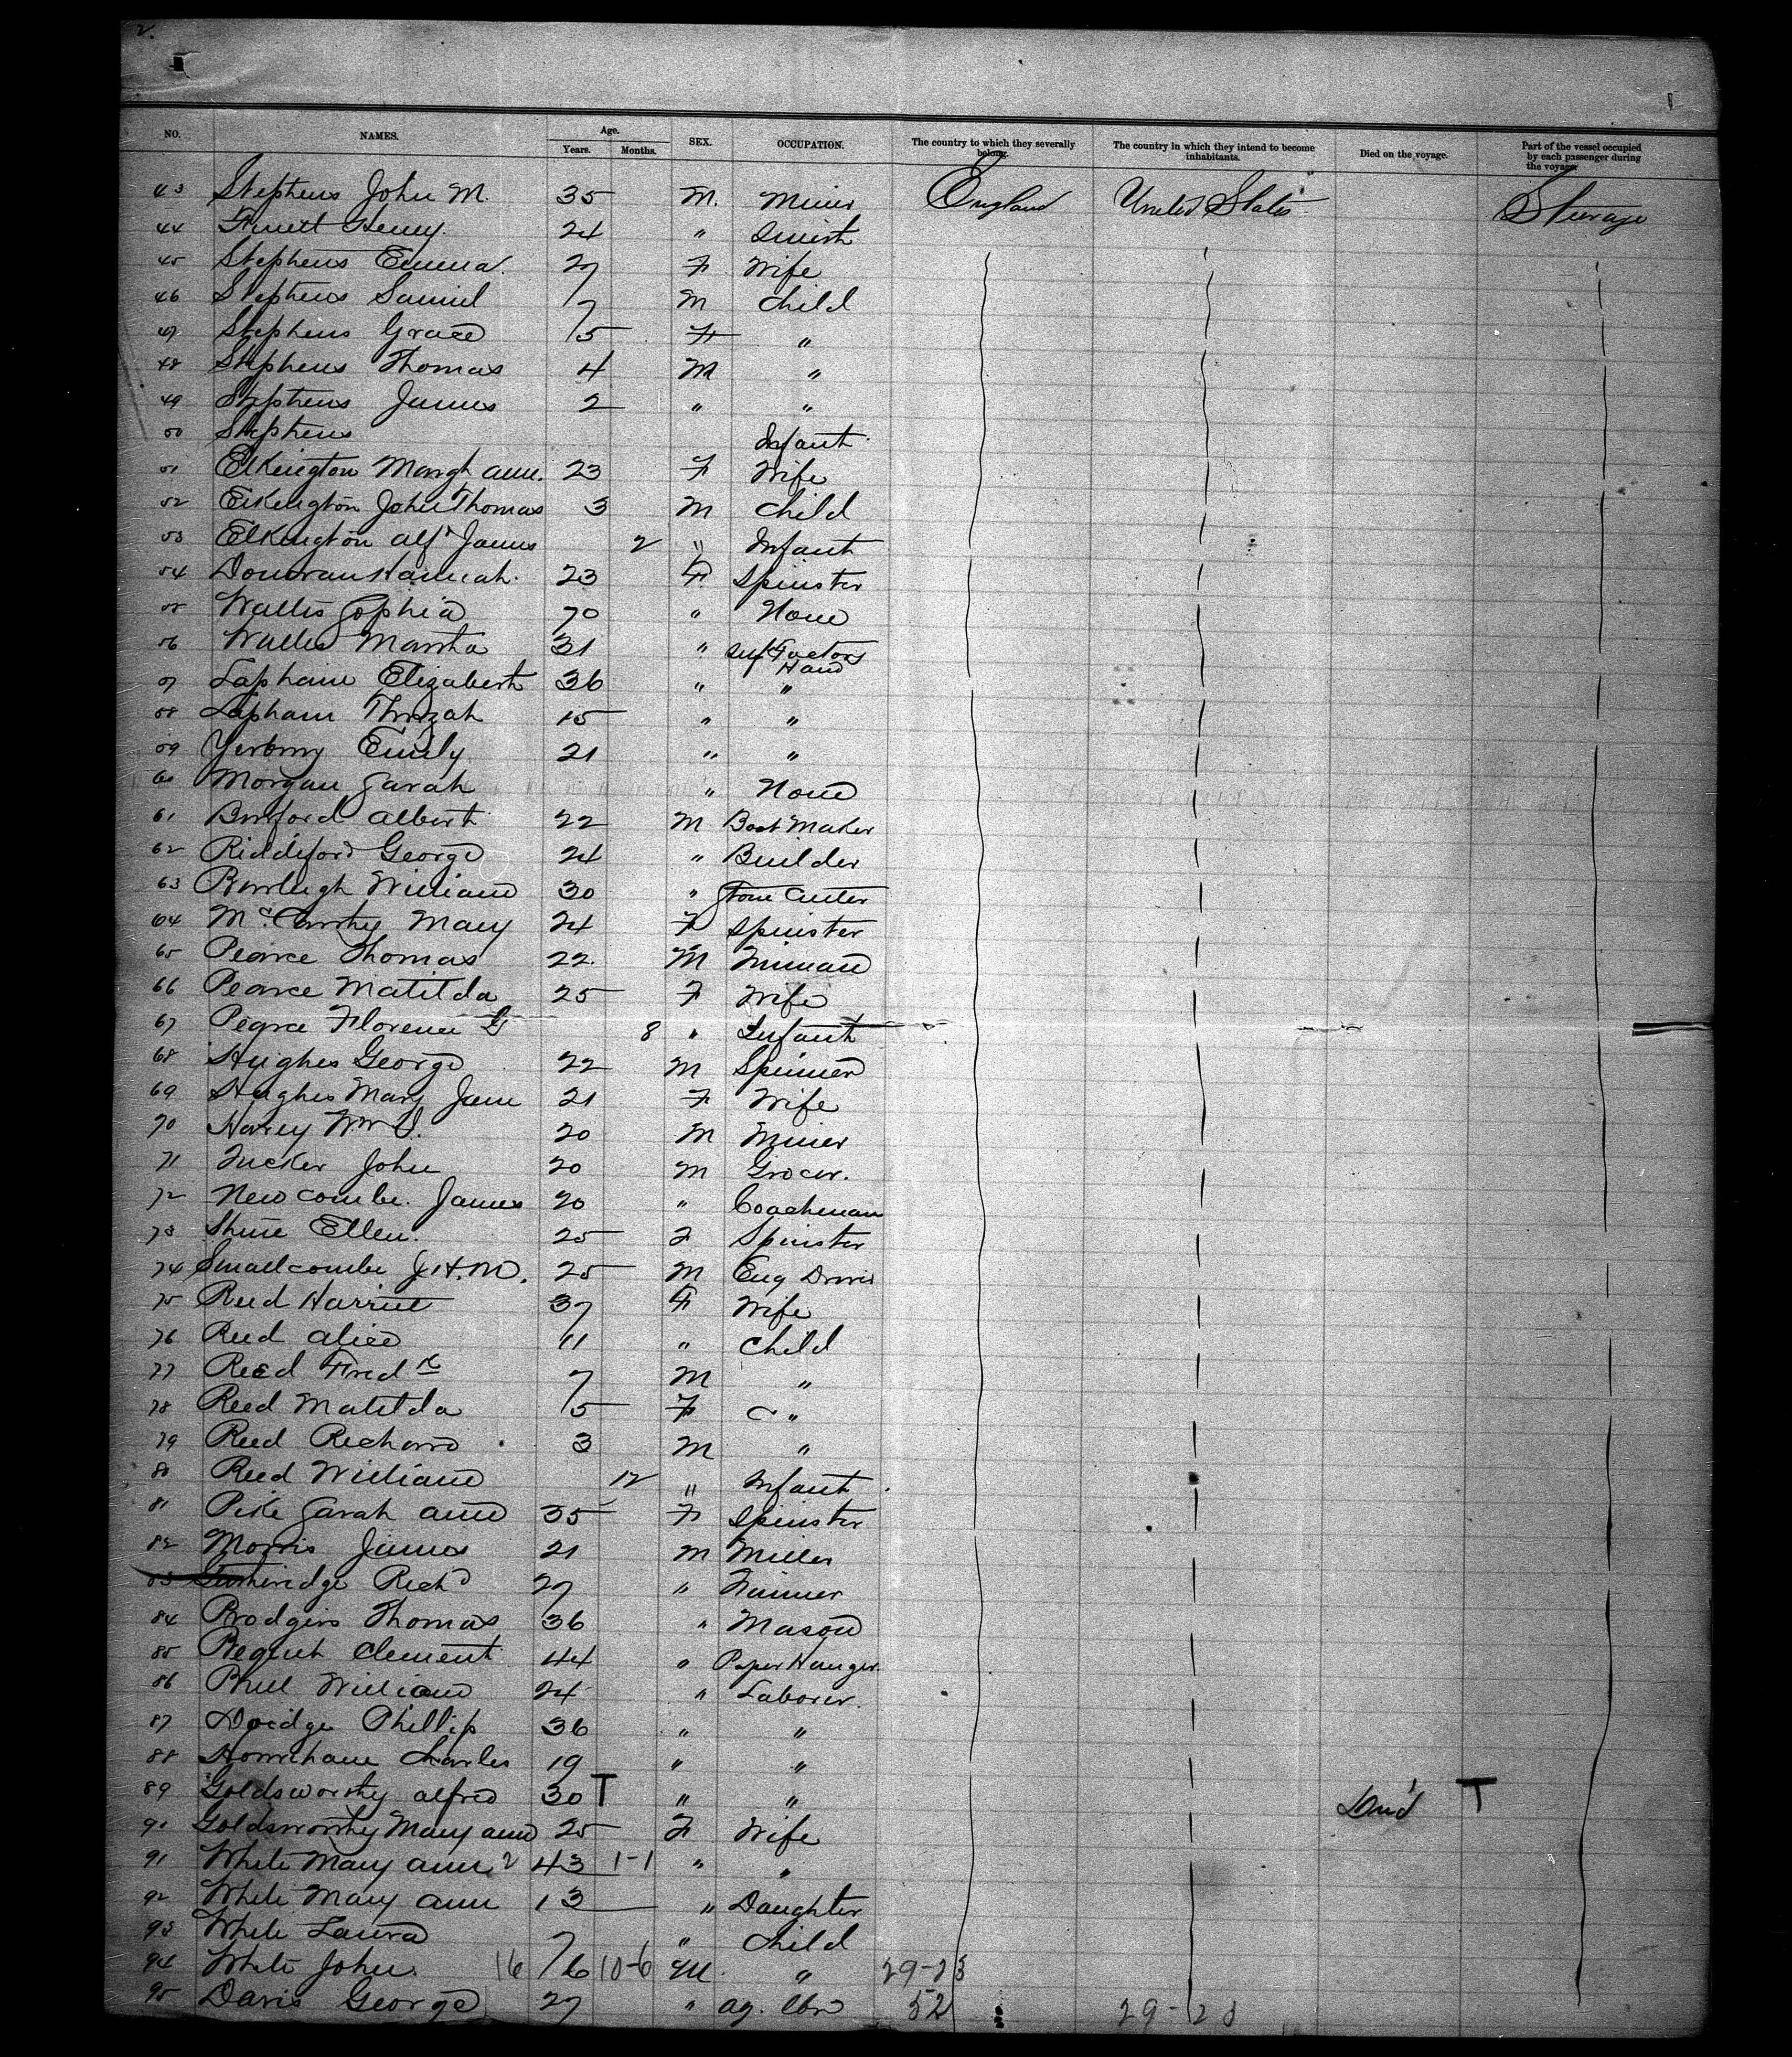 2.
NO. NAMES. Age. Years. Months. SEX. OCCUPATION. The country to which they severally belong. The country in which they intend to become inhabitants. Died on the voyage. Part of the vessel occupied by each passenger during the voyage.
43 Stephens John M. 35 M. Miner England United States Steerage
44 Henry 24 " Smith
45 Stephens Emma 27 F Wife
46 Stephens Samuel 7 M Child
47 Stephens Grace 5 F "
48 Stephens Thomas 4 M "
49 Stephens James 2 " "
50 Stephens Infant
51 Elkington Margt Ann. 23 F Wife
52 Elkington John Thomas 3 M Child
53 Elkington Alfd James 2 " Infant
54 Donovan Hannah. 23 F Spinster
55 Wallis Sophia 70 " None
56 Wallis Martha 31 " Silk Factory Hand
57 Lapham Elizabeth 36 " "
58 Lapham Thirzah 15 " "
59 Yerbury Emily 21 " "
60 Morgan Sarah " None
61 Burford Albert 22 M Boot Maker
62 Riddiford George 24 " Builder
63 Burleigh William 30 " Stone Cutter
64 McCarthy Mary 24 F Spinster
65 Pearce Thomas 22 M
66 Pearce Matilda 25 F Wife
67 Pearce Florence G 8 " Infant
68 Hughes George 22 M Spinner
69 Hughes Mary Jane 21 F Wife
70 Harry Wm J. 20 M Miner
71 Tucker John 20 M Grocer.
72 Newcombe James 20 " Coachman
73 Shine Ellen. 25 F Spinster
74 Smallcombe J.H.M. 25 M Eng Driver
75 Reed Harriet 37 F Wife
76 Reed Alice 11 " Child
77 Reed Fredk 7 M "
78 Reed Matilda 5 F "
79 Reed Richard 3 M "
80 Reed William 12 " Infant
81 Pike Sarah Ann 35 F Spinster
82 Morris James 21 M Miller
83 Richd 27 "
84 Brodgins Thomas 36 " Mason
85 Clement 44 " Paper Hanger
86 William 24 " Laborer
87 Doidge Phillip 36 " "
88 Hourihane Charles 19 " "
89 Goldsworthy Alfred 30 T " " T
90 Goldsworthy Mary Ann 25 F Wife
91 White Mary Ann 2 43 1-1 " "
92 White Mary Ann 13 " Daughter
93 White Laura 7 " Child
94 White John 16 6 10-6 M "
95 Davis George 27 " Ag. Lbr 52